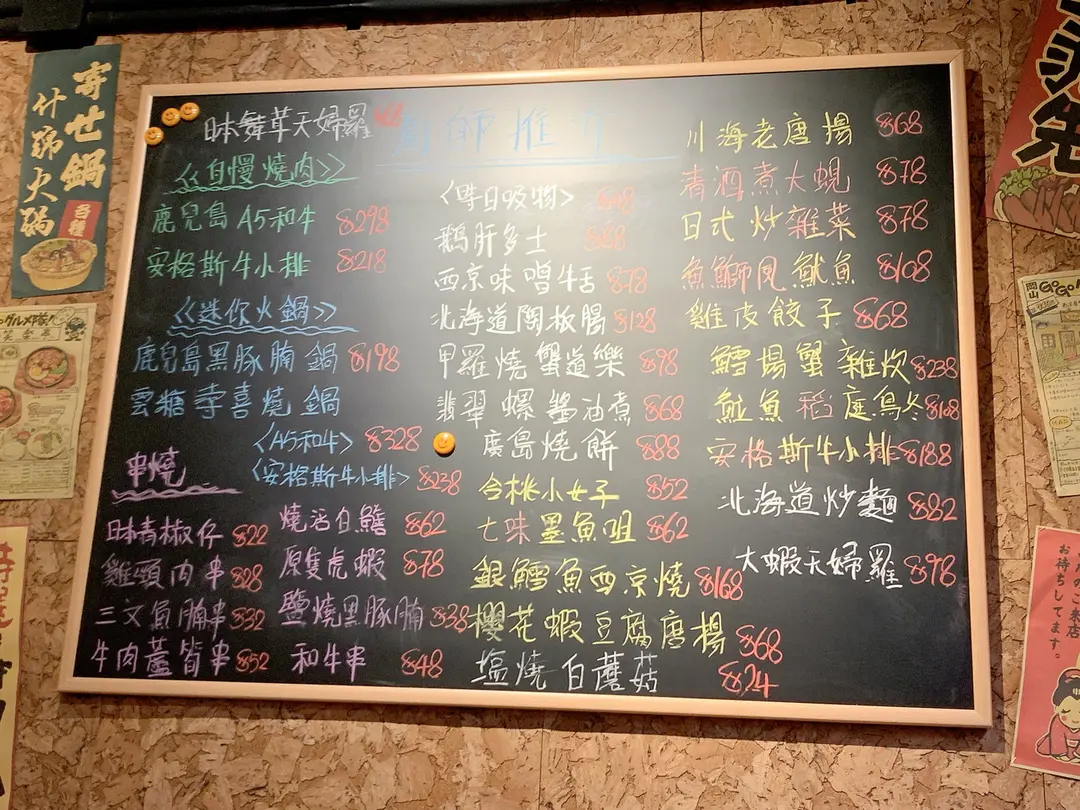 寄世鍋
什錦火鍋
各種
日本舞茸天婦羅
廚師推介
《自慢燒肉》
鹿兒島 A5和牛 $298
安格斯牛小排 $218
《迷你火鍋》
鹿兒島黑豚腩鍋 $198
雲糖壽喜燒鍋
〈A5和牛〉 $328
〈安格斯牛小排〉 $238
串燒
日本青椒仔 $22
雞頸肉串 $28
三文魚腩串 $32
牛肉蘆筍串 $52
燒活白鱔 $62
原隻虎蝦 $78
鹽燒黑豚腩 $38
和牛串 $48
〈每日吸物〉
鵝肝多士
西京味噌牛舌 $78
北海道陶板腸 $128
甲羅燒蟹道樂 $98
翡翠螺醬油煮 $68
廣島燒餅 $88
合桃小女子 $52
七味墨魚咀 $62
銀鱈魚西京燒 $168
櫻花蝦豆腐唐揚 $68
塩燒白蘑菇 $24
川海老唐揚 $68
清酒煮大蜆 $78
日式炒雜菜 $78
魚鰤凤魷魚 $108
雞皮餃子 $68
鱈場蟹雜炊 $238
魷魚稻庭烏冬 $108
安格斯牛小排 $188
北海道炒麵 $82
大蝦天婦羅 $98
岡山
お待ちしてます。